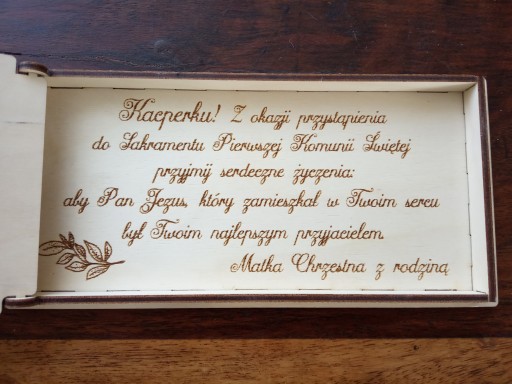 Kacperku! Z okazji przystąpienia
do Sakramentu Pierwszej Komunii Świętej
przyjmij serdeczne życzenia:
aby Pan Jezus, który zamieszkał w Twoim sercu
był Twoim najlepszym przyjacielem.
Matka Chrzestna z rodziną